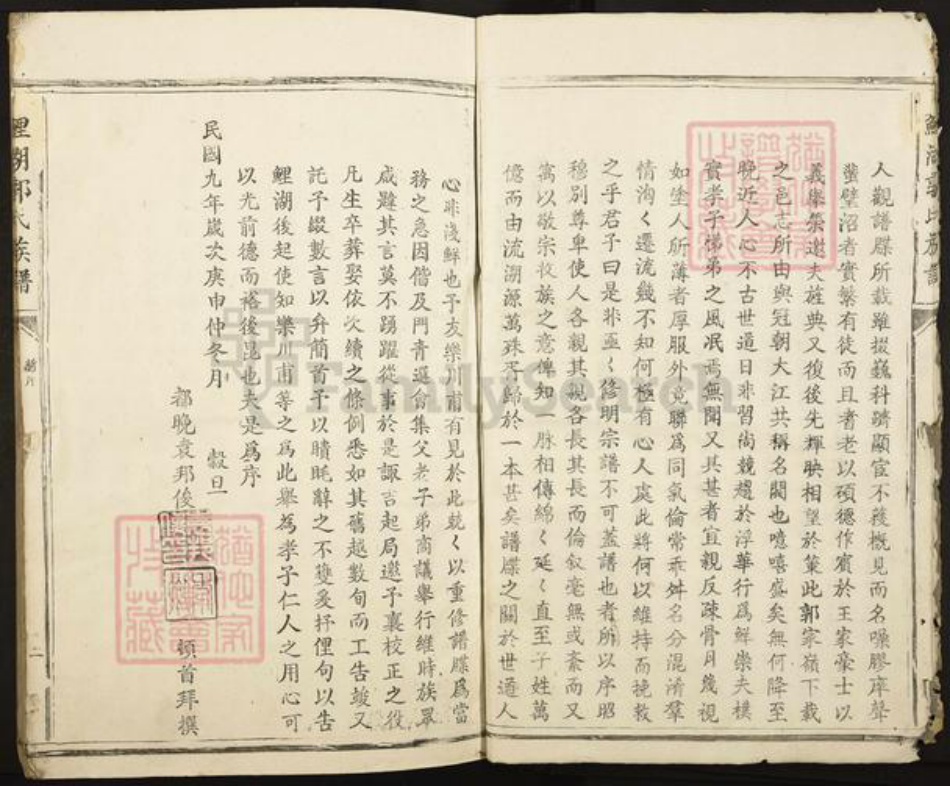 人觀譜牒所載雖掇巍科躋顯宦不獲概見而名噪膠庠聲
蜚璧沼者實繁有徒而且耆老以碩德作賓於王家豪士以
義舉榮邀夫旌典又復後先輝映相望於策此郭家嶺下載
之邑志所由與冠朝大江共稱名閥也噫嘻盛矣無何降至
晚近人心不古世道日非習尚競趨於浮華行為鮮崇夫樸
實孝子悌弟之風泯焉無聞又其甚者宜親反疎骨月幾視
如塗人所薄者厚服外竟聯為同氣倫常乖舛名分混淆羣
情洶〱遷流幾不知何極有心人處此將何以維持而挽救
之乎君子曰是非亟〱修明宗譜不可蓋譜也者所以序昭
穆別尊卑使人各親其親各長其長而倫叙毫無或紊而又
寓以敬宗收族之意俾知一脉相傳綿〱延〱直至子姓萬
億而由流溯源萬殊乎歸於一本甚矣譜牒之關於世道人
心非淺鮮也予友樂川甫有見於此兢〱以重修譜牒為當
務之急因偕及門青選合集父老子弟商議舉行維時族眾
咸韙其言莫不踴躍從事於是諏吉起局邀予襄校正之役
凡生卒葬娶依次續之條例悉如其舊越數旬而工告竣又
託予綴數言以弁簡首予以聵眊辭之不獲爰抒俚句以告
鯉湖後起使知樂川甫等之為此舉為孝子仁人之用心可
以光前德而裕後昆也夫是為序
民國九年歲次庚申仲冬月 穀旦
袁邦俊 頓首拜撰
鯉湖郭氏族譜
二
FamilySearch